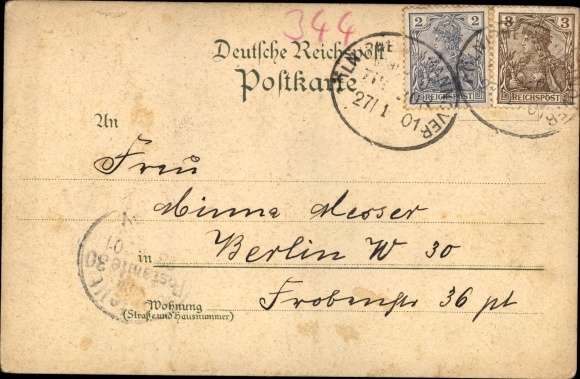 344
Deutsche Reichspost
Postkarte
2 2
REICHSPOST
3 3
REICHSPOST
27/1 01
An
Frau
Minna Messer
in Berlin W 30
Wohnung
(Straße und Hausnummer)
Frobenstr 36 pt